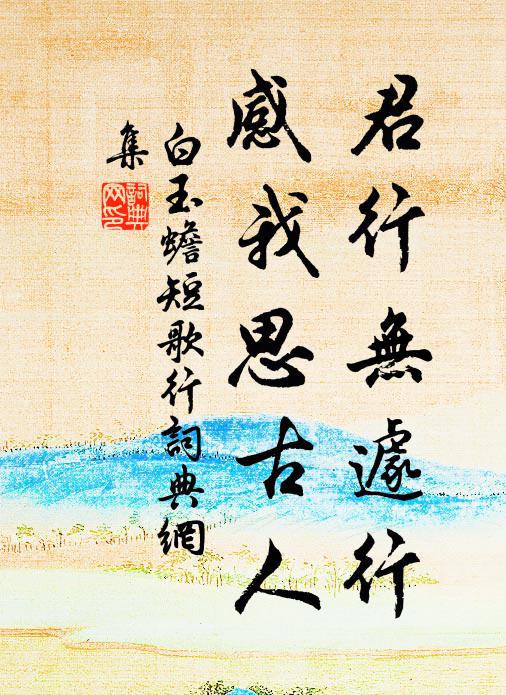 君行無遽行
感我思古人
白玉蟾短歌行詞典網
集
詞典
网印